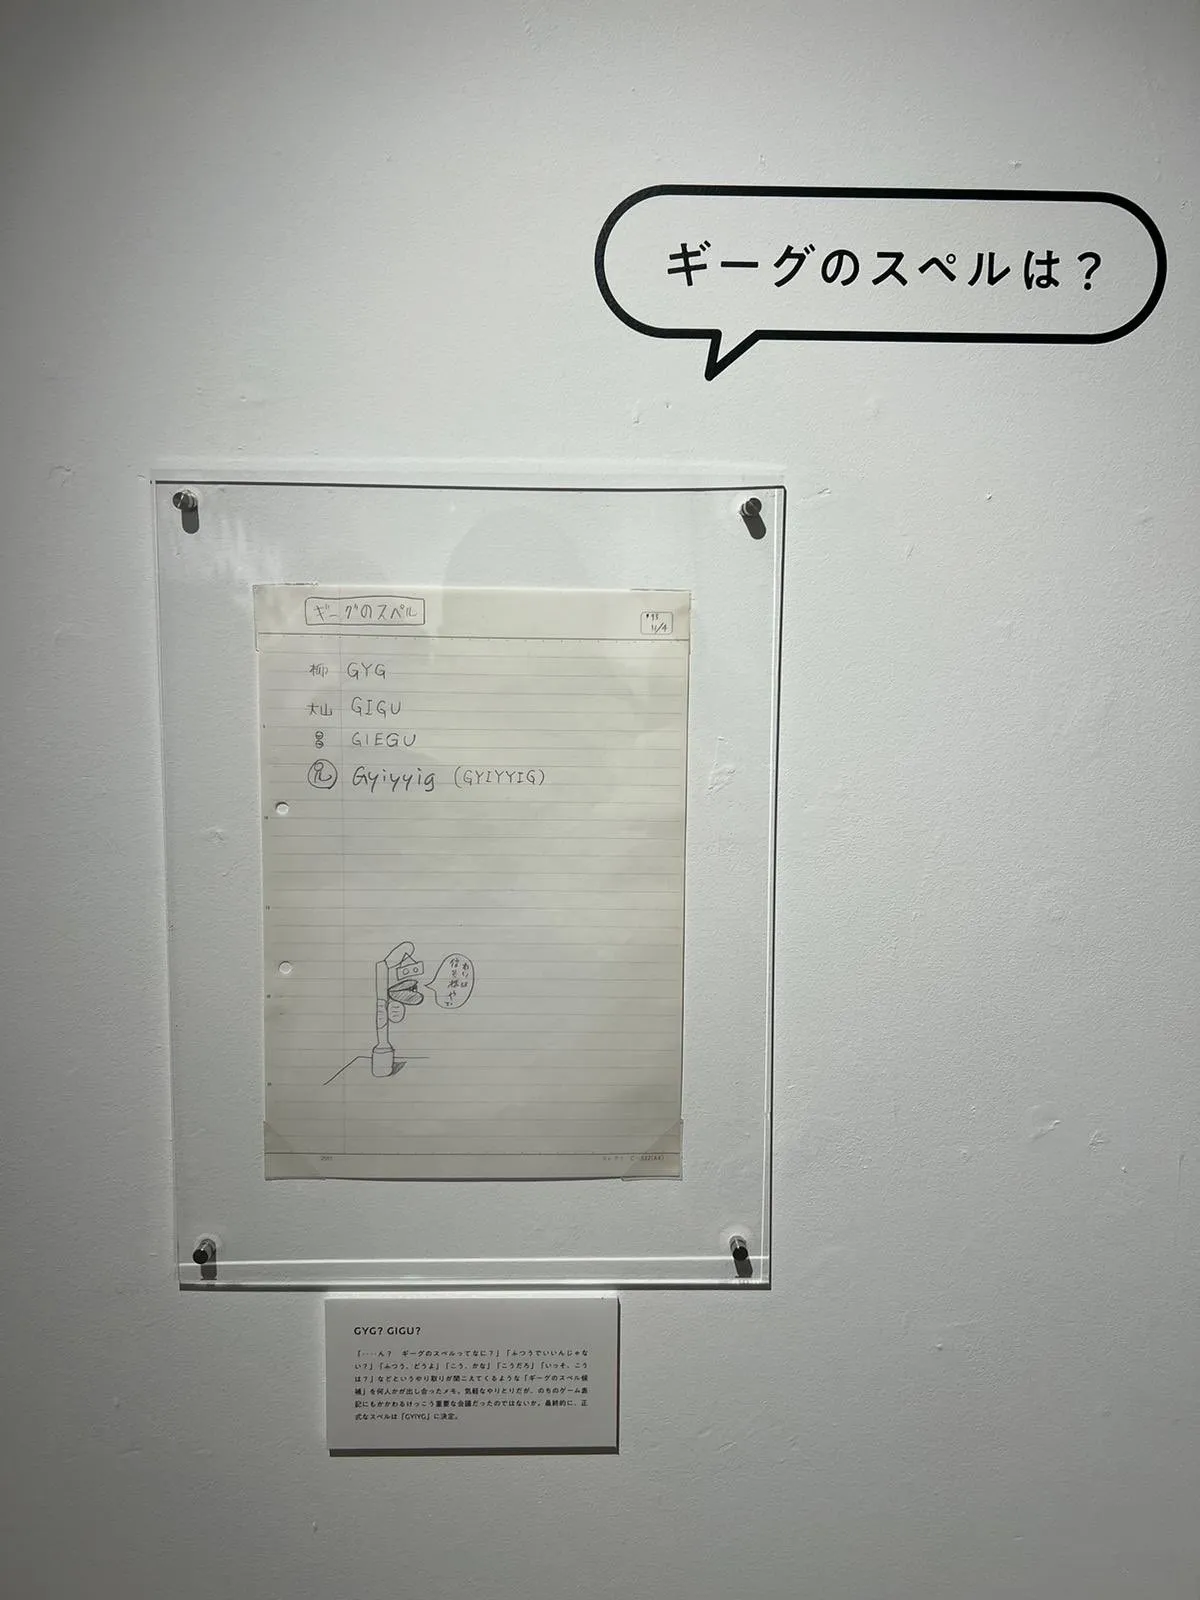 ギーグのスペルは？
ギーグのスペル
'93
11/4
柳 GYG
大山 GIGU
GIEGU
兄 Gyiyyig (GYIYYIG)
わしは
信楽様やで
GYG? GIGU?
「‥‥ん？ ギーグのスペルってなに？」「ふつうでいいんじゃな
い？」「ふつう、どうよ」「こう、かな」「こうだろ」「いっそ、こう
は？」などというやり取りが聞こえてくるような「ギーグのスペル候
補」を何人かが出し合ったメモ。気軽なやりとりだが、のちのゲーム表
記にもかかわるけっこう重要な会議だったのではないか。最終的に、正
式なスペルは「GYIYG」に決定。